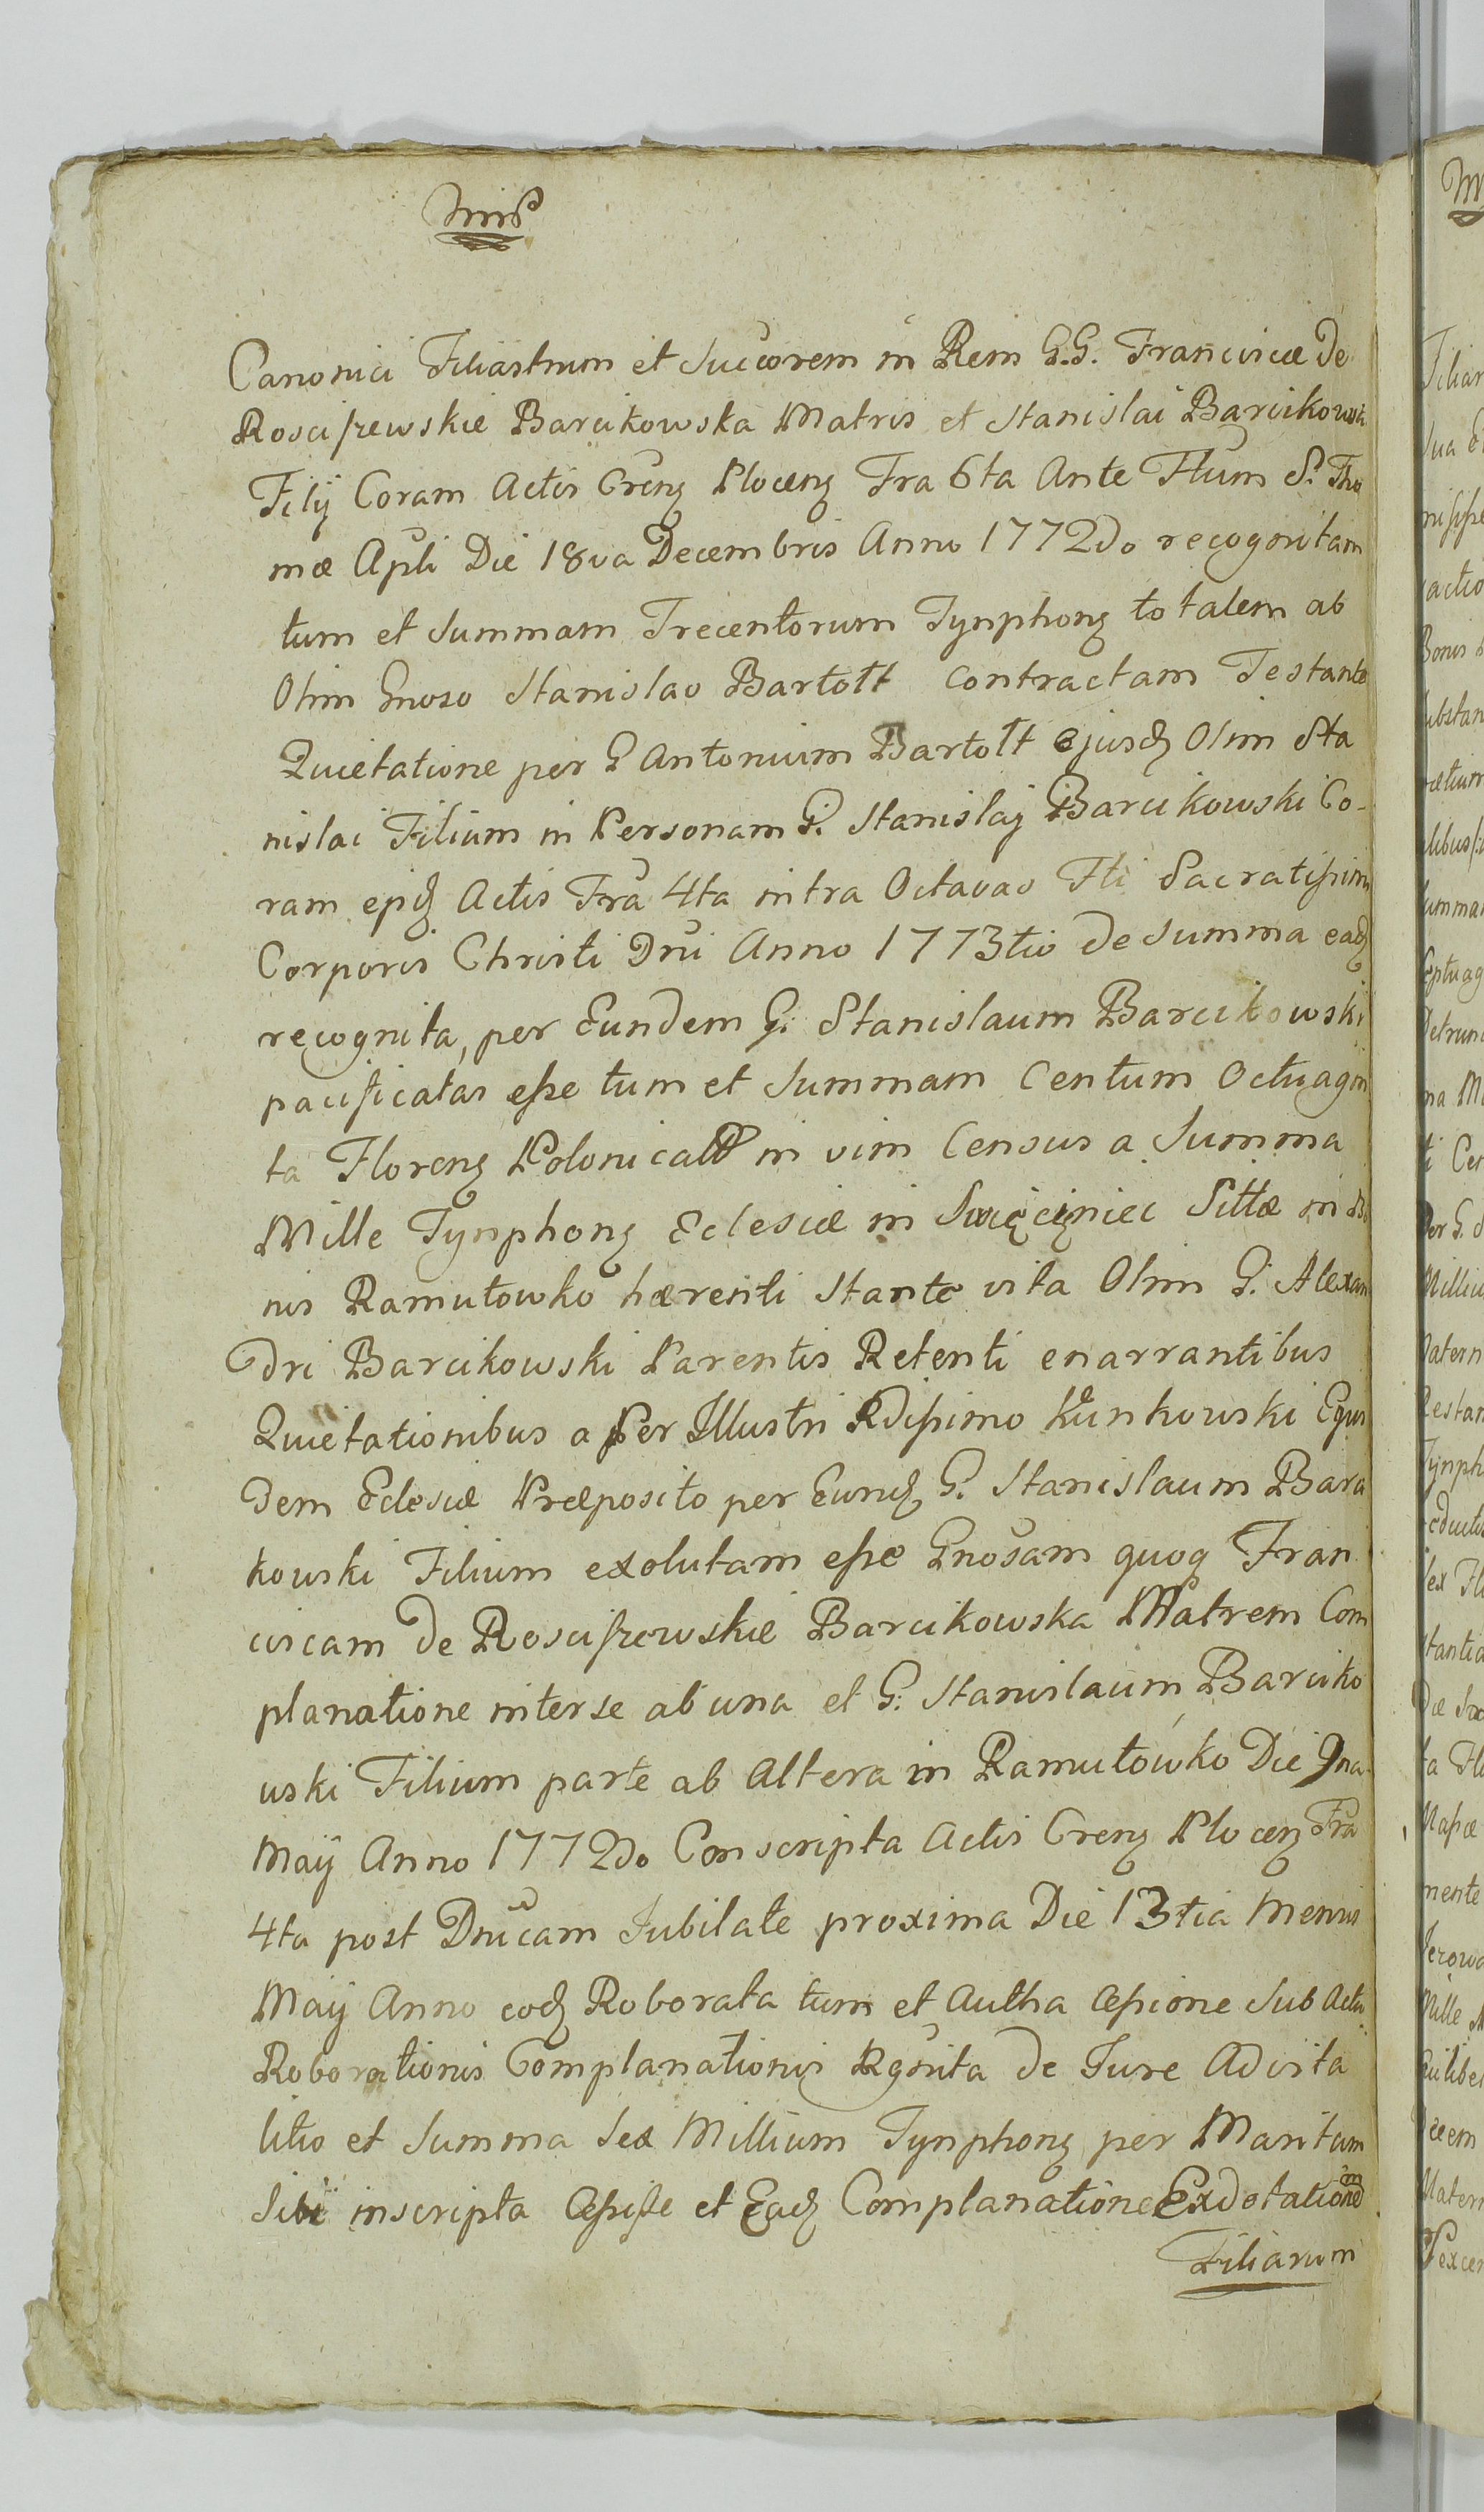 Canonici Filiastrum et Succorem in Rem G.G. Franciscæ de
Rosciszewskie Barcikowska Matris et Stanislai Barcikowski
Filÿ Coram Actis Crenʒ Plocenʒ Fra 6ta Ante Ftum S. Tho
mæ Apli Die 18va Decembris Anno 1772do recognitam
tum et Summam Trecentorum Tynphonʒ totalem ab
Olim Gnoso Stanislao Bartołt contractam Testante
Quietatione per G Antonium Bartołt ejusdʒ Olim Sta
nislai Filium in Personam G. Stanislaj Barcikowski Co-
ram ejsdʒ Actis Fra 4ta intra Octavas Fti Sacratissimi
Corporis Christi Dni Anno 1773tio de Summa eadʒ
recognita, per Eundem G. Stanislaum Barcikowski
pacificatas esse tum et Summam Centum Octuagin
ta Florenʒ Polonical in vim Census a Summa
Mille Tynphonʒ Eclesiæ in Święcieniec Sittæ in Bo
nis Ramutowko hærenti Stante vita Olim G. Alexan
dri Barcikowski Parentis Retenti enarrantibus
Quietationibus a Per Illustri Rdissimo Kunkowski Ejus
dem Eclesiæ Præposito per Eundʒ G. Stanislaum Barci
kowski Filium exolutam esse Gnosam quoq Fran
ciscam de Rosciszewskie Barcikowska Matrem Com
planatione inter se ab una et G. Stanislaum Barciko
wski Filium parte ab Altera in Ramutówko Die 9na
Maÿ Anno 1772do Conscripta Actis Crenʒ Plocenʒ Fra
4ta post Dnicam Jubilate proxima Die 13tia Mensis
Maÿ Anno eodʒ Roborata tum et Autha Cessione Sub Actu
Roborationis Complanationis Rgnita de Jure Advita
litio et Summa Sex Millium Tynphonʒ per Maritum
Sibi inscripta Cessisse et Eadʒ Complanatione Exdotatione
Filiarum